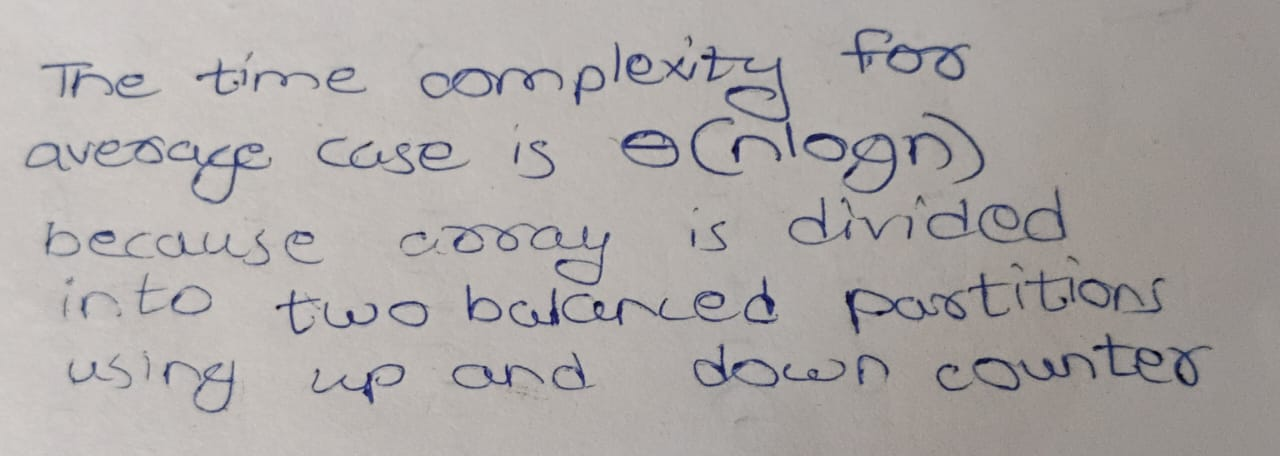 The time complexity for
average case is Θ(nlogn)
because array is divided
into two balanced partitions
using up and down counter